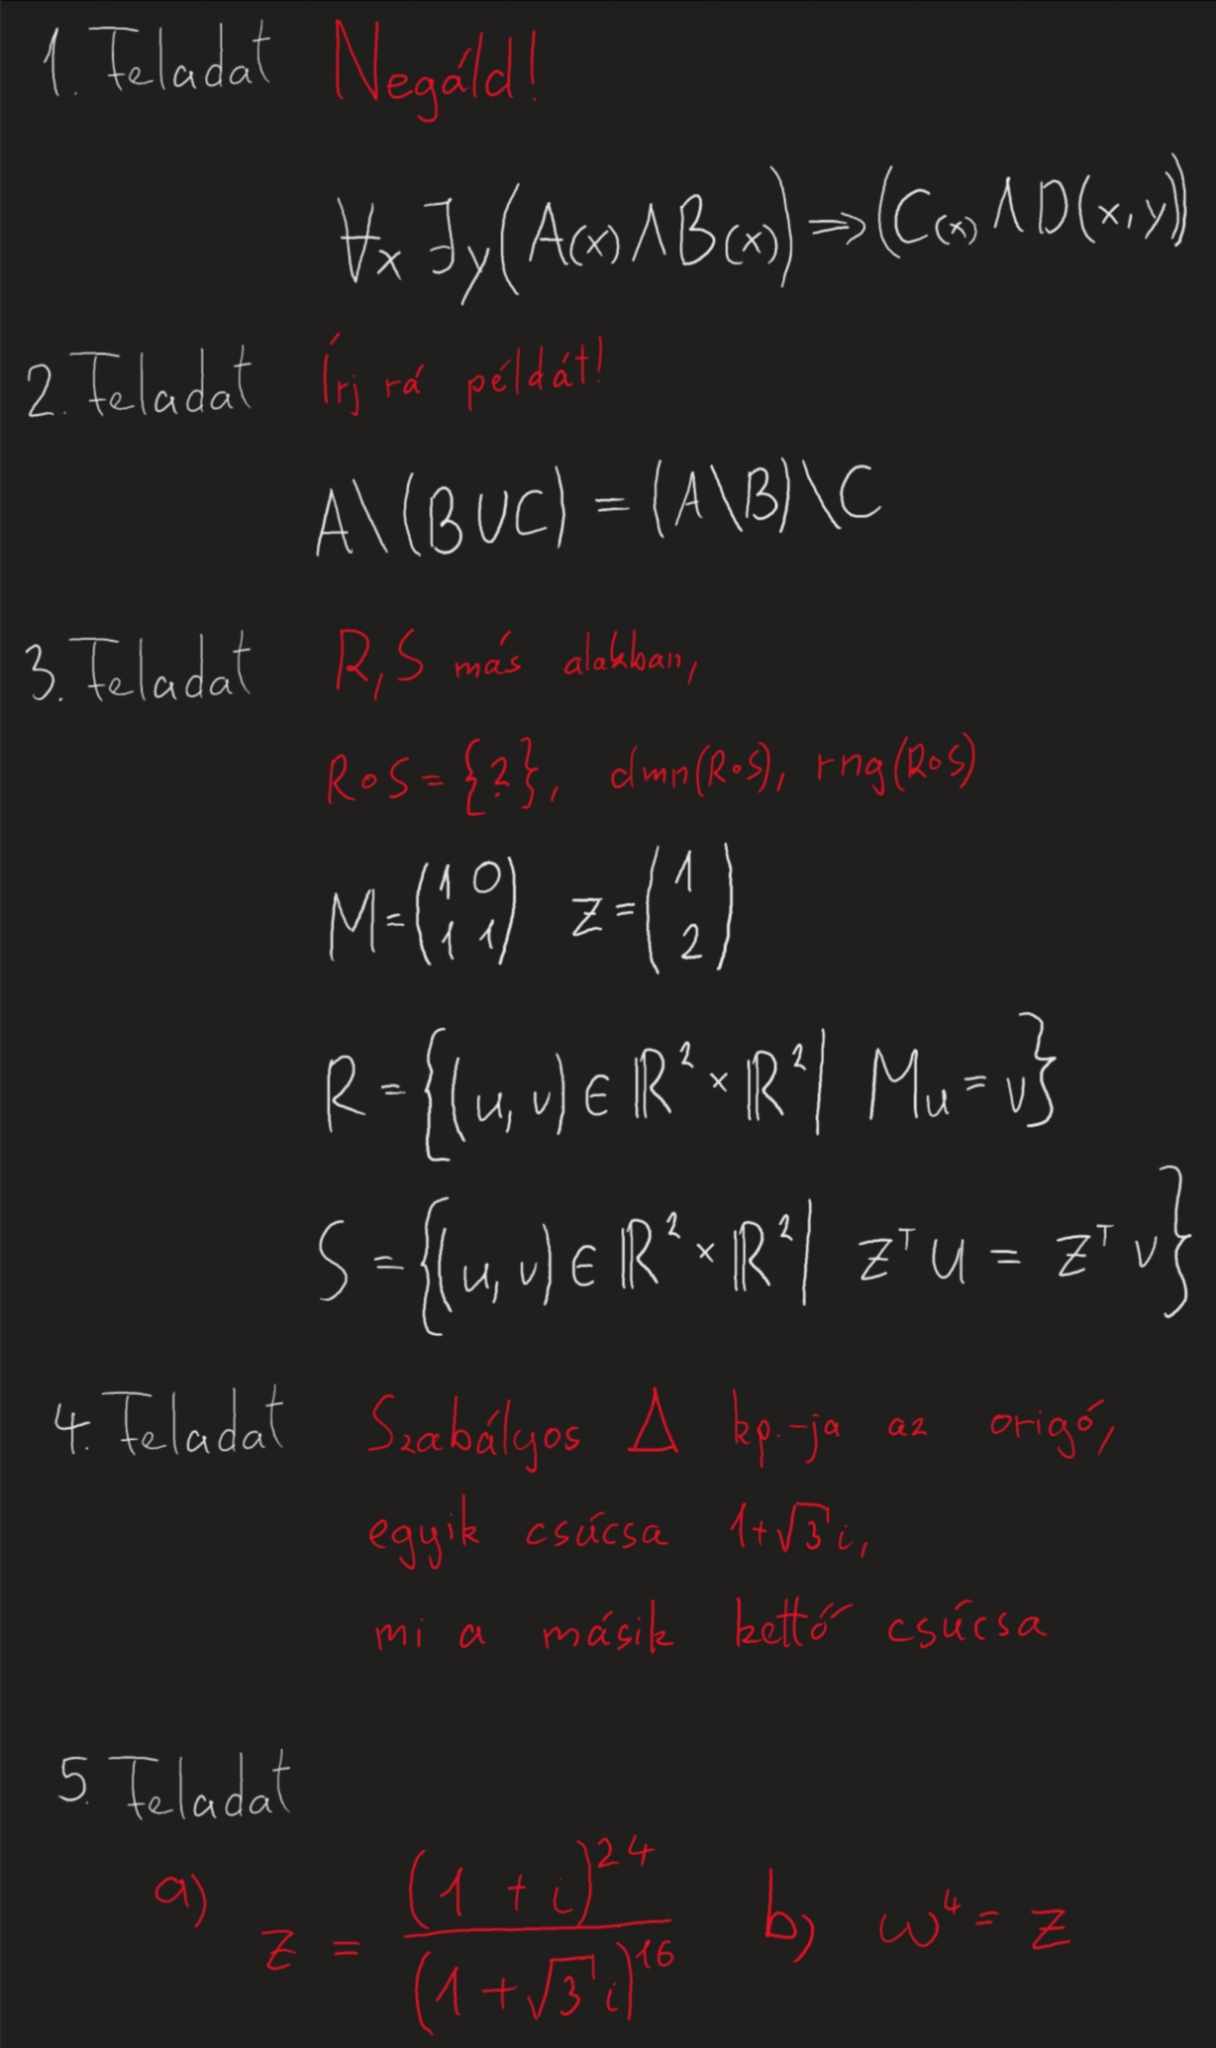 1. Feladat Negáld!
∀x ∃y(A(x)∧B(x))⇒(C(x)∧D(x,y))
2. Feladat Írj rá példát!
A\(B∪C) = (A\B)\C
3. Feladat R,S más alakban,
R∘S={?}, dmn(R∘S), rng(R∘S)
M=(1 0
1 1) z=(1
2)
R={(u,v)∈ℝ²×ℝ²| Mu=v}
S={(u,v)∈ℝ²×ℝ²| zᵀu = zᵀv}
4. Feladat Szabályos Δ kp.-ja az origó,
egyik csúcsa 1+√3i,
mi a másik kettő csúcsa
5. Feladat
a) z = (1+i)²⁴/(1+√3i)¹⁶ b) w⁴=z